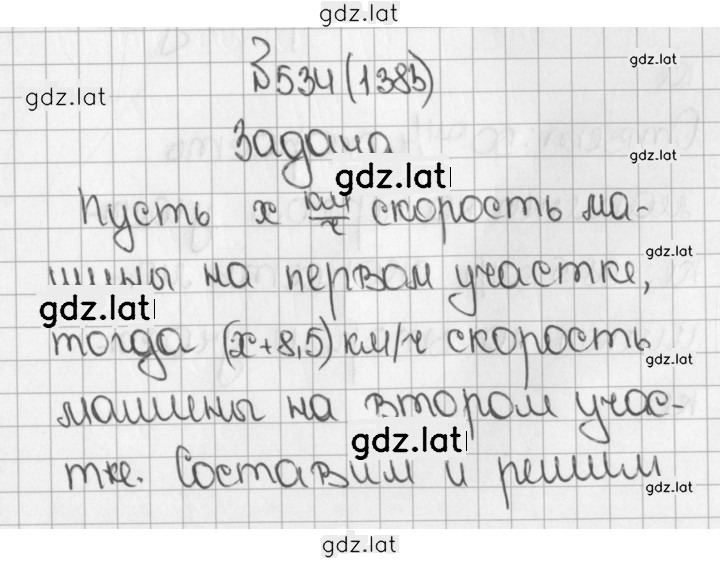 gdz.lat
№534(1385)
gdz.lat
gdz.lat
Задача
gdz.lat
gdz.lat
Пусть x км/ч скорость ма-
gdz.lat
шины на первом участке,
gdz.lat
тогда (x+8,5) км/ч скорость
gdz.lat
машины на втором учас-
gdz.lat
тке. Составим и решим
gdz.lat
gdz.lat